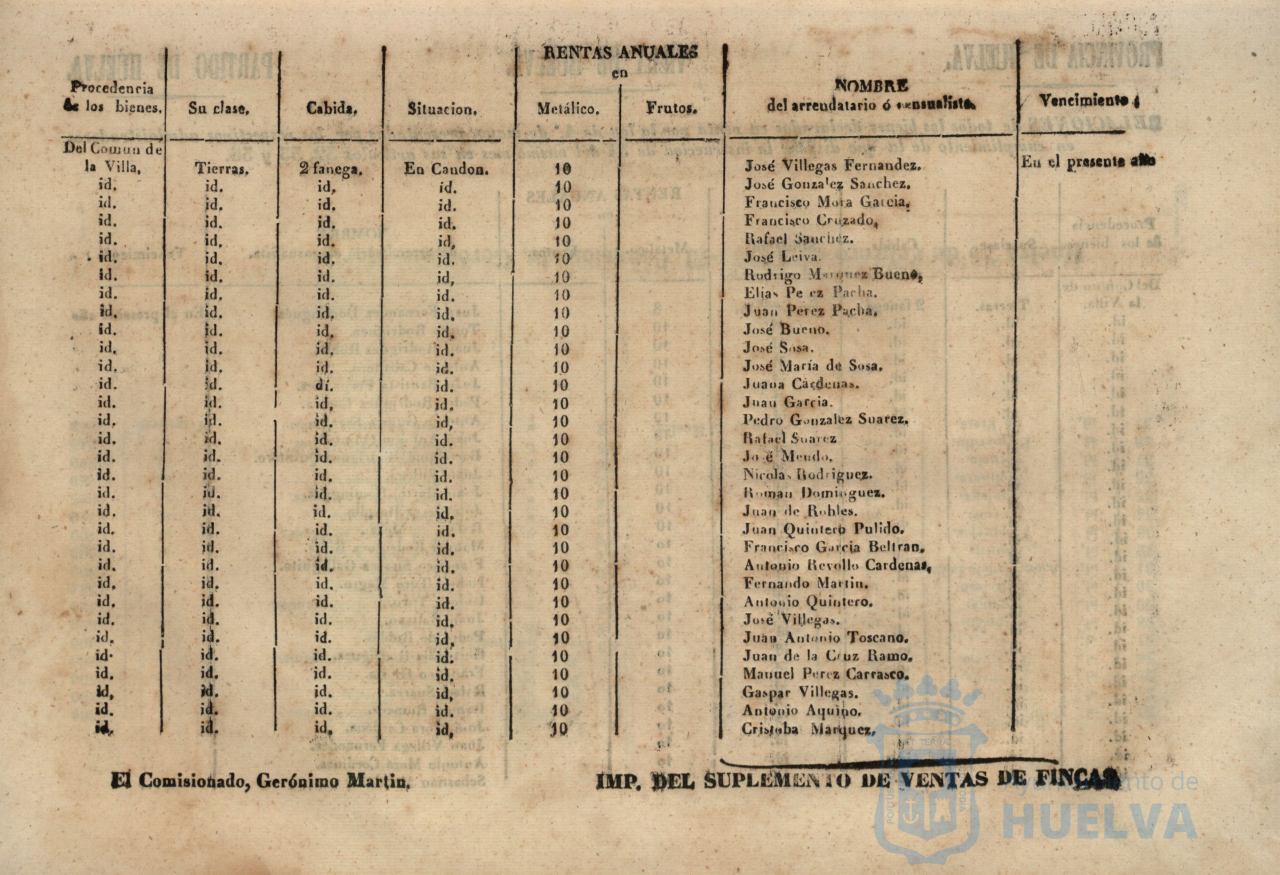 RENTAS ANUALES
en
Procedencia
de los bienes. Su clase. Cabida. Situacion. Metálico. Frutos. NOMBRE
del arrendatario ó censualista. Vencimiento
Del Comun de
la Villa, Tierras. 2 fanega. En Caudon. 10 José Villegas Fernandez. En el presente año
id. id. id, id. 10 José Gonzalez Sanchez.
id. id. id. id. 10 Francisco Mora Garcia.
id. id. id. id. 10 Francisco Cruzado,
id. id. id. id, 10 Rafael Sanchez.
id. id. id. id. 10 José Leiva.
id. id. id. id, 10 Rodrigo Marquez Bueno,
id. id. id. id. 10 Elias Pe ez Pacha.
id. id. id. id. 10 Juan Perez Pacha.
id. id. id. id. 10 José Bueno.
id. id. id. id. 10 José Sosa.
id. id. id. id. 10 José María de Sosa.
id. id. dí. id. 10 Juana Cardenas.
id. id. id, id. 10 Juan Garcia.
id. id. id. id, 10 Pedro Gonzalez Suarez.
id. id. id. id. 10 Rafael Suarez
id. id. id. id. 10 José Mendo.
id. id. id. id. 10 Nicolas Rodriguez.
id. id. id. id. 10 Roman Dominguez.
id. id. id. id. 10 Juan de Robles.
id. id. id. id, 10 Juan Quintero Pulido.
id. id. id. id. 10 Francisco Garcia Beltran.
id. id. id. id, 10 Antonio Revollo Cardenas,
id. id. id. id. 10 Fernando Martin.
id. id. id. id. 10 Antonio Quintero.
id. id. id. id. 10 José Villegas.
id. id. id. id, 10 Juan Antonio Toscano.
id. id. id. id. 10 Juan de la Cruz Ramo.
id. id. id. id. 10 Manuel Perez Carrasco.
id, id. id. id, 10 Gaspar Villegas.
id. id. id. id. 10 Antonio Aquino.
id. id. id, id, 10 Cristoba Marquez,
El Comisionado, Gerónimo Martin.
IMP. DEL SUPLEMENTO DE VENTAS DE FINCAS
de
HUELVA